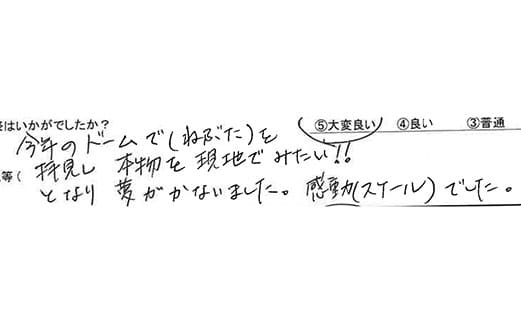 はいかがでしたか? ⑤大変良い ④良い ③普通
今年のドームで(ねぶた)を
等( 拝見し 本物を現地でみたい!!
となり 夢がかないました。感動(スケール)でした。